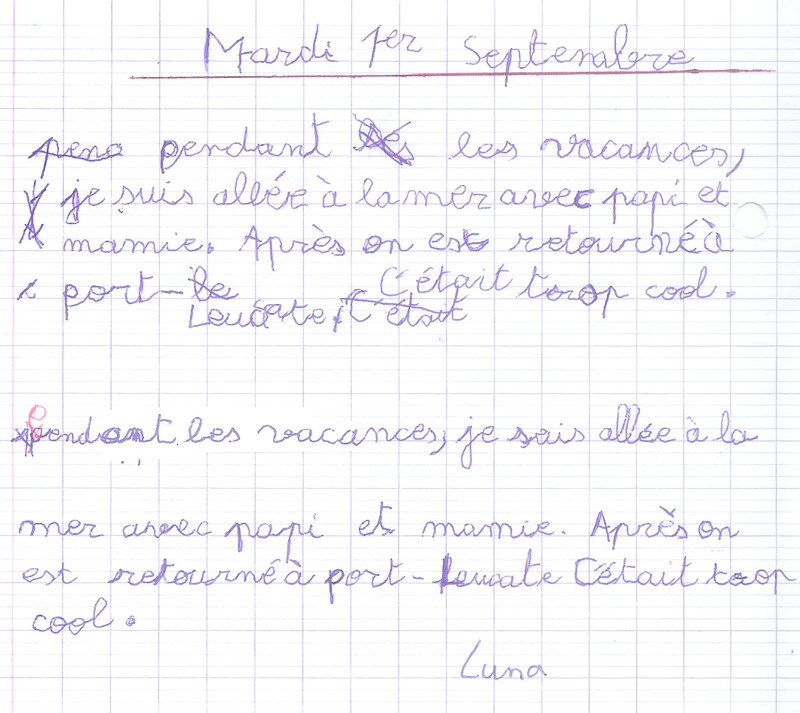 Mardi 1er Septembre
pend pendant les les vacances,
je suis allée à la mer avec papi et
mamie. Après on est retourné à
port-le C'était trop cool.
Leucate, C'était
Pendant les vacances, je suis allée à la
mer avec papi et mamie. Après on
est retourné à port-Leucate C'était trop
cool.
Luna